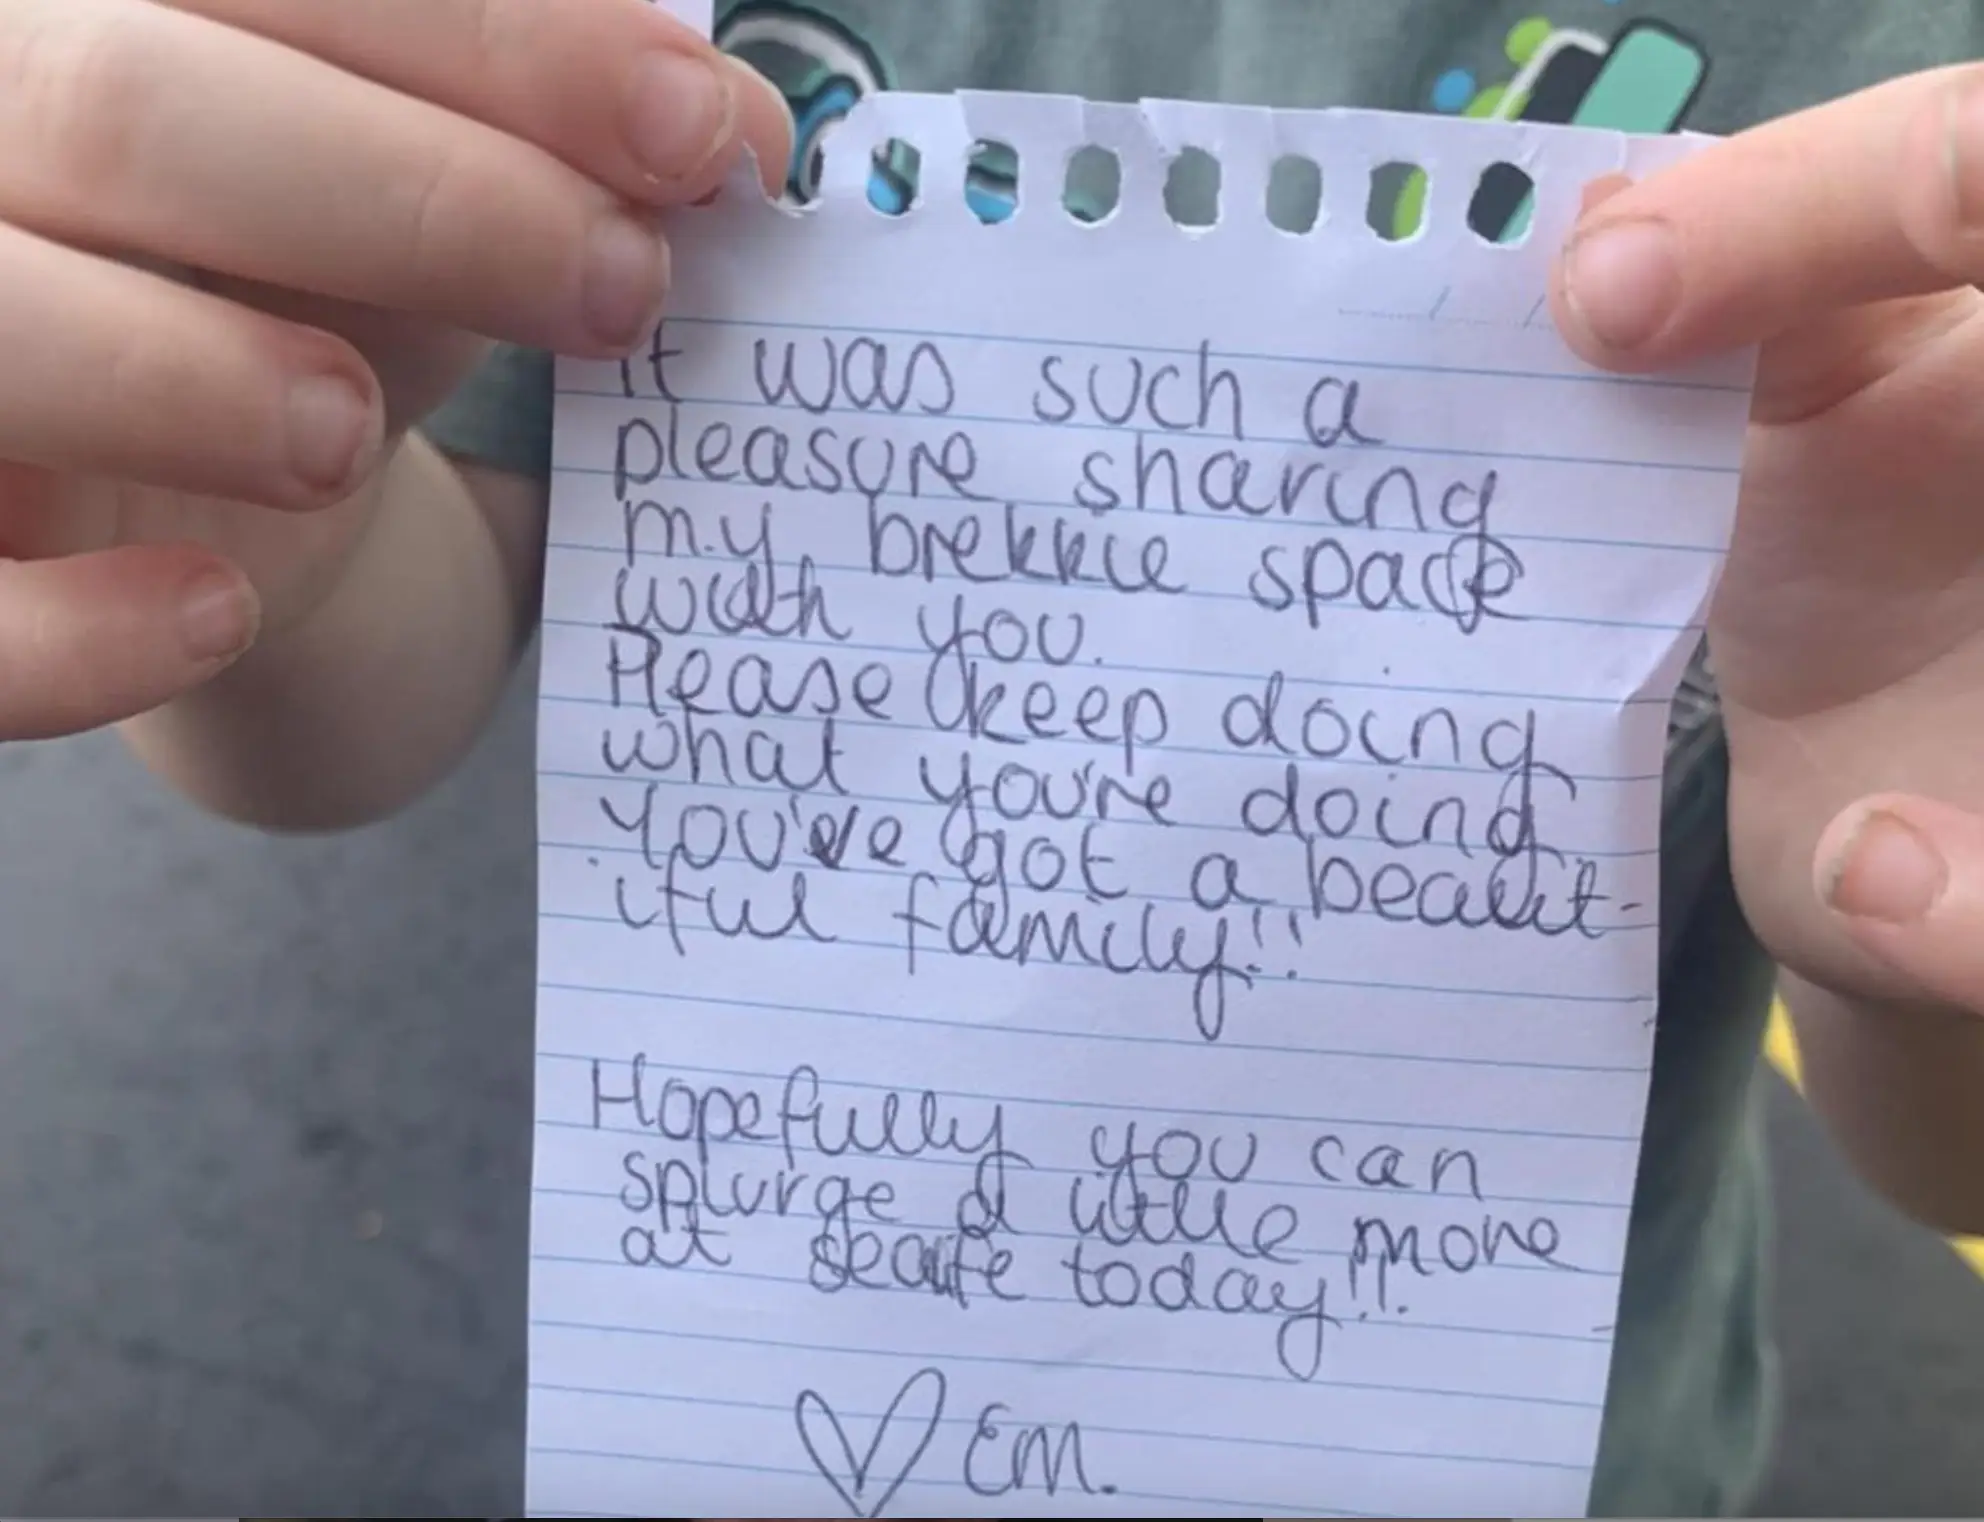 It was such a
pleasure sharing
my brekkie space
with you.
Please keep doing
what you're doing
You've got a beaut-
iful family!!
Hopefully you can
splurge a little more
at seaife today!!
♡ Em.